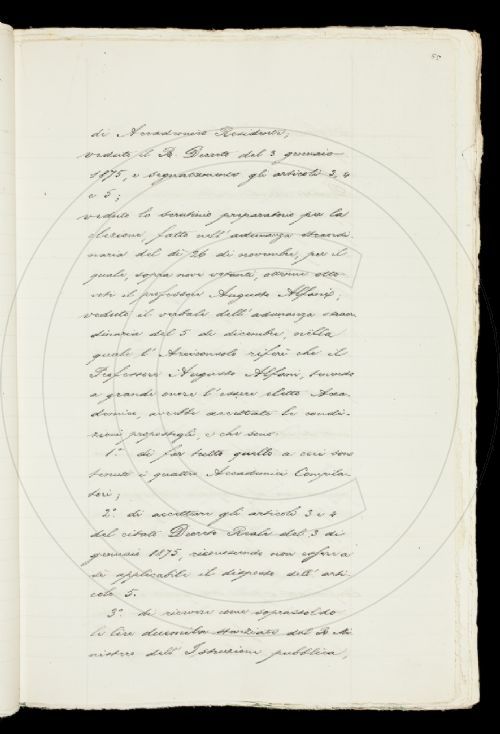 55
di Accademico Residente;
veduto il R. Decreto del 3 gennaio
1875, e segnatamente gli articoli 3, 4
e 5;
veduto lo scrutinio preparatorio per la
elezione fatto nell'adunanza straordi-
naria del dì 26 di novembre, per il
quale, sopra nove votanti, ottenne otto
voti il professore Augusto Alfani;
veduto il verbale dell'adunanza straor
dinaria del 5 di dicembre, nella
quale l'Arciconsolo riferì che il
Professore Augusto Alfani, tenendo
a grande onore l'essere eletto Acca-
demico, avrebbe accettato le condi-
zioni propostegli, e che sono:
1.º di far tutto quello a cui sono
tenuti i quattro Accademici Compila-
tori;
2.º di accettare gli articoli 3 e 4
del citato Decreto Reale del 3 di
gennaio 1875, riconoscendo non esser a
sè applicabile il disposto dell'arti-
colo 5.
3.º di ricevere come soprassoldo
le lire duemila stanziate dal R. Mi-
nistero dell'Istruzione pubblica,